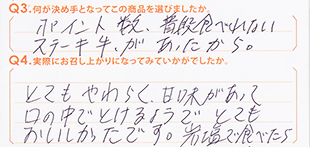 Q3.何が決め手となってこの商品を選びましたか。
ポイント数、普段食べれない
ステーキ牛、があったから。
Q4.実際にお召し上がりになってみていかがでしたか。
とてもやわらく、甘味があって
口の中でとけるようで とても
おいしかったです。岩塩で食べたら